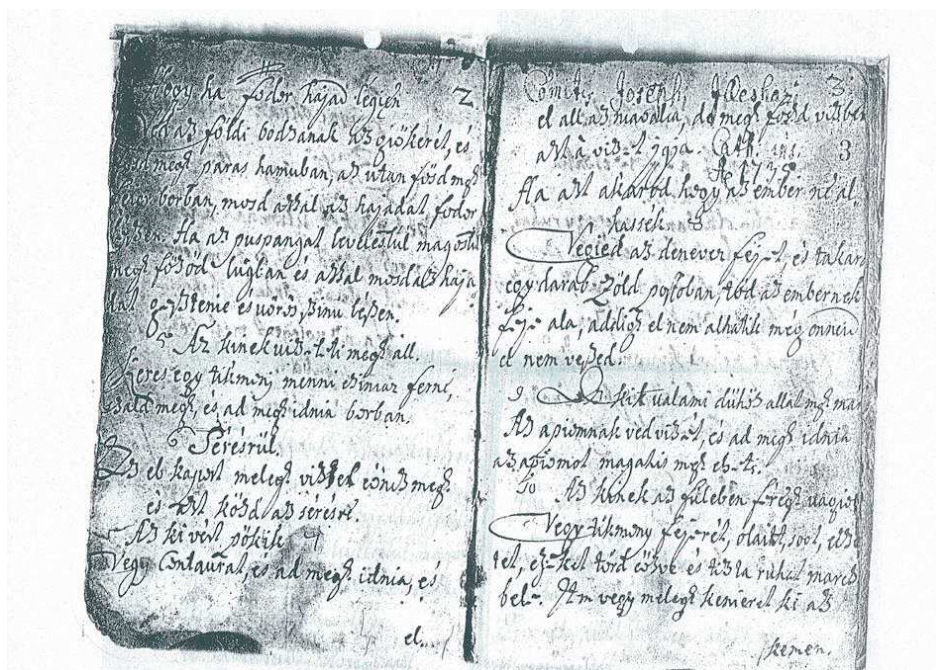 Hogy ha fodor hajad légien 2
Ved az földi bodzanak az giökerét, és
megh paras hamuban, az utan főzd megh
borban, mosd azzal az hajadat, fodor
Ha az puspangat levelestül magostul
megh főzöd lúgban és azzal mosdaz haja
dat
es vörös szinü leszen.
Az kinek megh áll.
Keres egy tikmony
megh, és ad megh idnia borban.
Sérésrül.
Az eb kaport melegh megh
és azt közd az sérésre.
Az ki vért pökik
Vegy Centaurat, és ad megh idnia, és
el
Comitis Joseph 3
el all az megh főzd vizben
azt a vizet Cath. 3
Ha azt akarod hogy az ember ne al
hassék 8
Vegied az denever fejet, és takard
egy darab zöld tedd az embernek
feje ala, addigh el nem alhatik mégh onnen
el nem veszed.
9 kit valami dühös allat megh mar
Az apiomnak ved vizet, és ad megh idnia
az apiomot magatis megh eheti.
10 Az kinek az fülében féregh vagion
Vegy tikmony fejeret, olaiat, soot, ecze
tet, ezeket törd eözve és tiszta ruhat marcz
bele. Itm vegy melegh kenieret ki az
kemen.